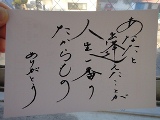 あなたと
逢えたことが
人生一番の
たからもの
ありがとう